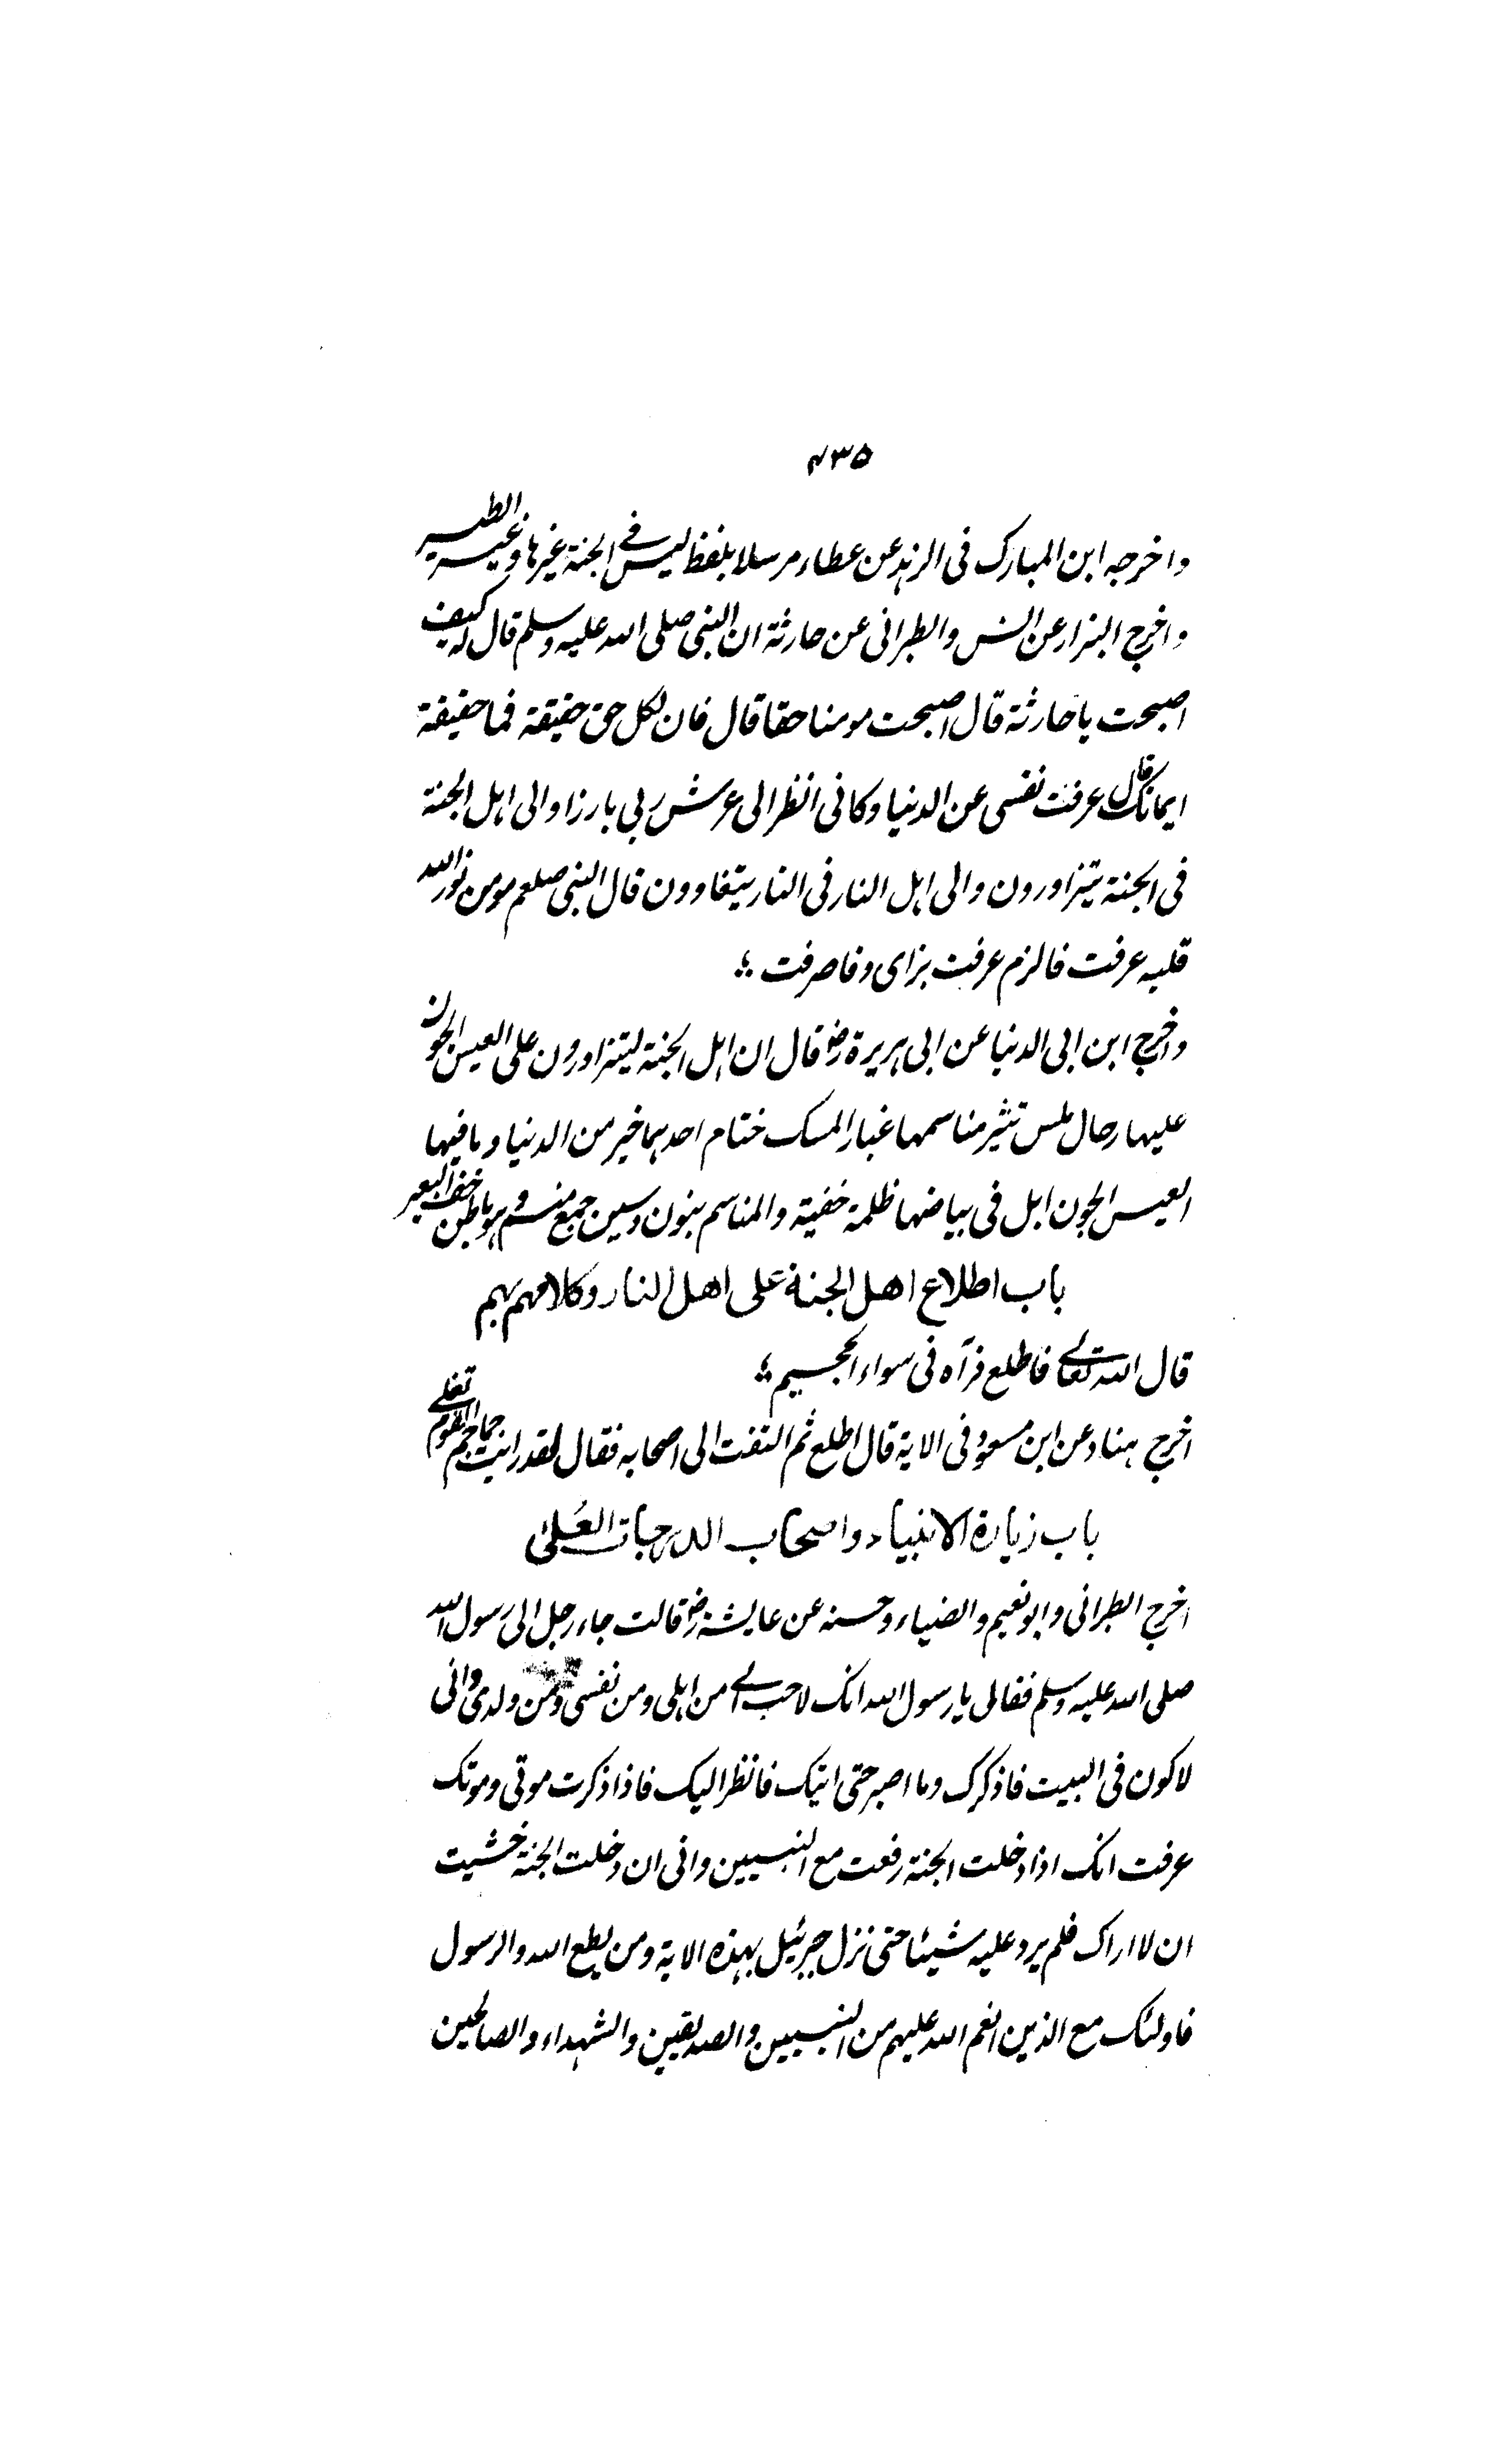 ۴۳۵
واخرجه ابن المبارک فی الزہد عن عطاء مرسلا بلفظ لیس فی الجنة غیرہا وغیر الطیر
واخرج البزار عن انس والطبرانی عن حارثة ان النبی صلی الله علیه وسلم قال له کیف
اصبحت یا حارثة قال اصبحت مومنا حقا قال فان لکل حق حقیقة فما حقیقة
ایمانک قال عرفت نفسی عن الدنیا وکانی انظر الی عرش ربی بارزا والی اہل الجنة
فی الجنة یتزاورون والی اہل النار فی النار یتغاوون قال النبی صلعم مومن نور الله
قلبه عرفت فالزم عرفت
واخرج ابن ابی الدنیا عن ابی ہریرة رض قال ان اہل الجنة لیتزاورون علی العیس الجون
علیہا رحال ملس تثیر مناسمہا غبار المسک ختام احدہما خیر من الدنیا وما فیہا
العیس الجون ابل فی بیاضہا ظلمة خفیة والمناسم بنون وسین جمع منسم وہو باطن خف البعیر
باب اطلاع اهل الجنة علی اهل النار وکلامهم بهم
قال الله تعالے فاطلع فرآہ فی سواء الجحیم
اخرج ہناد عن ابن مسعود فی الایة قال اطلع ثم التفت الی اصحابه فقال لقد رایت جماجم القوم تغلی
باب زیارة الانبیاء واصحاب الدرجات العُلیٰ
اخرج الطبرانی وابو نعیم والضیاء وحسنه عن عایشة رض قالت جاء رجل الی رسول الله
صلی الله علیه وسلم فقال یا رسول الله انک لاحب الے من اہلی ومن نفسی ومن ولدی وانی
لاکون فی البیت فاذکرک وما اصبر حتی اتیک فانظر الیک فاذا ذکرت موتی وموتک
عرفت انک اذا دخلت الجنة رفعت مع النبیین وانی ان دخلت الجنة خشیت
ان لا اراک فلم یرد علیه شیئا حتی نزل جبرئیل بہذہ الایة ومن یطع الله والرسول
فاولئک مع الذین انعم الله علیہم من النبیین والصدیقین والشہداء والصالحین